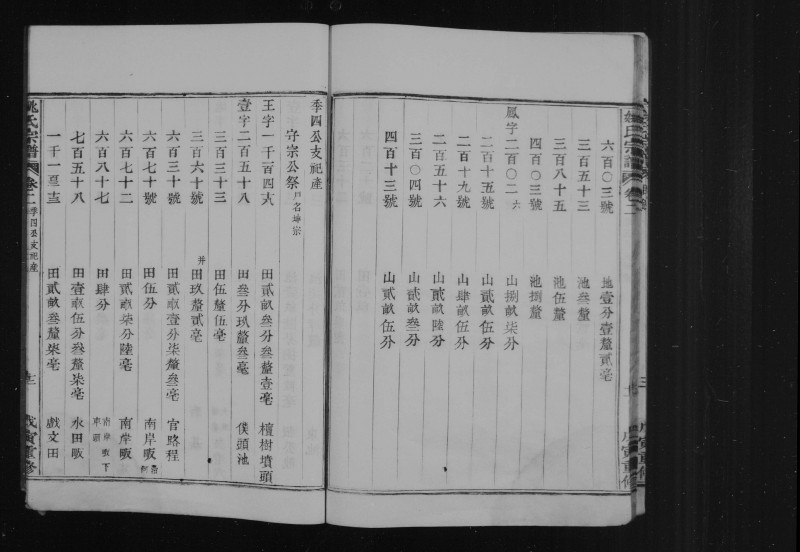 六百〇三號 地壹分壹釐貳毫
三百五十三 池叁釐
三百八十五 池伍釐
四百〇三號 池捌釐
鳳字二百〇二六 山捌畝柒分
二百十五號 山貳畝伍分
二百十九號 山肆畝伍分
二百五十六 山貳畝陸分
三百〇四號 山貳畝叁分
四百十三號 山貳畝伍分
季四公支祀產
守宗公祭戶名坤宗
王字一千百四 田貳畝叁分叁釐壹毫 檀樹墳頭
壹字二百五十八 田叁分玖釐叁毫 僕頭池
三百三十三 田伍釐伍毫
三百六十號 并田玖釐貳毫
六百三十號 田貳畝壹分柒釐叁毫 官路程
六百七十號 田伍分 南岸畈
六百七十二 田貳畝柒分陸毫 南岸畈
六百八十七 田肆分 南岸畈下
七百五十八 田壹畝伍分叁釐柒毫 永田畈
一千一百 田貳畝叁釐柒毫 戲文田
姚氏宗譜 卷二 季四公支祀產 戊寅重修